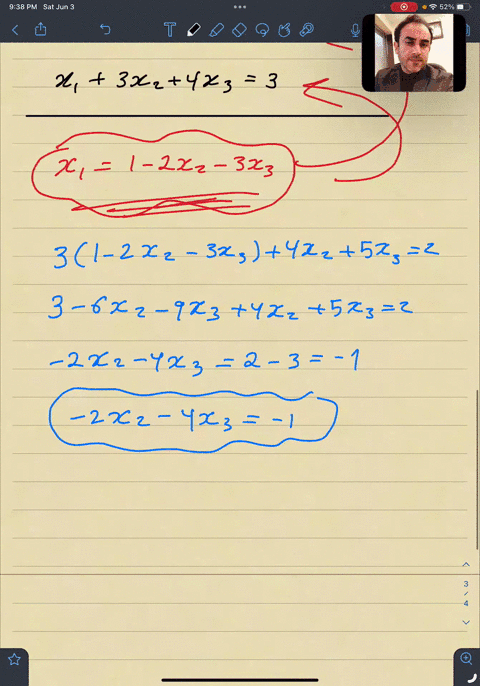 9:38 PM Sat Jun 3
52%
T
x₁ + 3x₂ + 4x₃ = 3
x₁ = 1 - 2x₂ - 3x₃
3(1 - 2x₂ - 3x₃) + 4x₂ + 5x₃ = 2
3 - 6x₂ - 9x₃ + 4x₂ + 5x₃ = 2
-2x₂ - 4x₃ = 2 - 3 = -1
-2x₂ - 4x₃ = -1
3
/
4